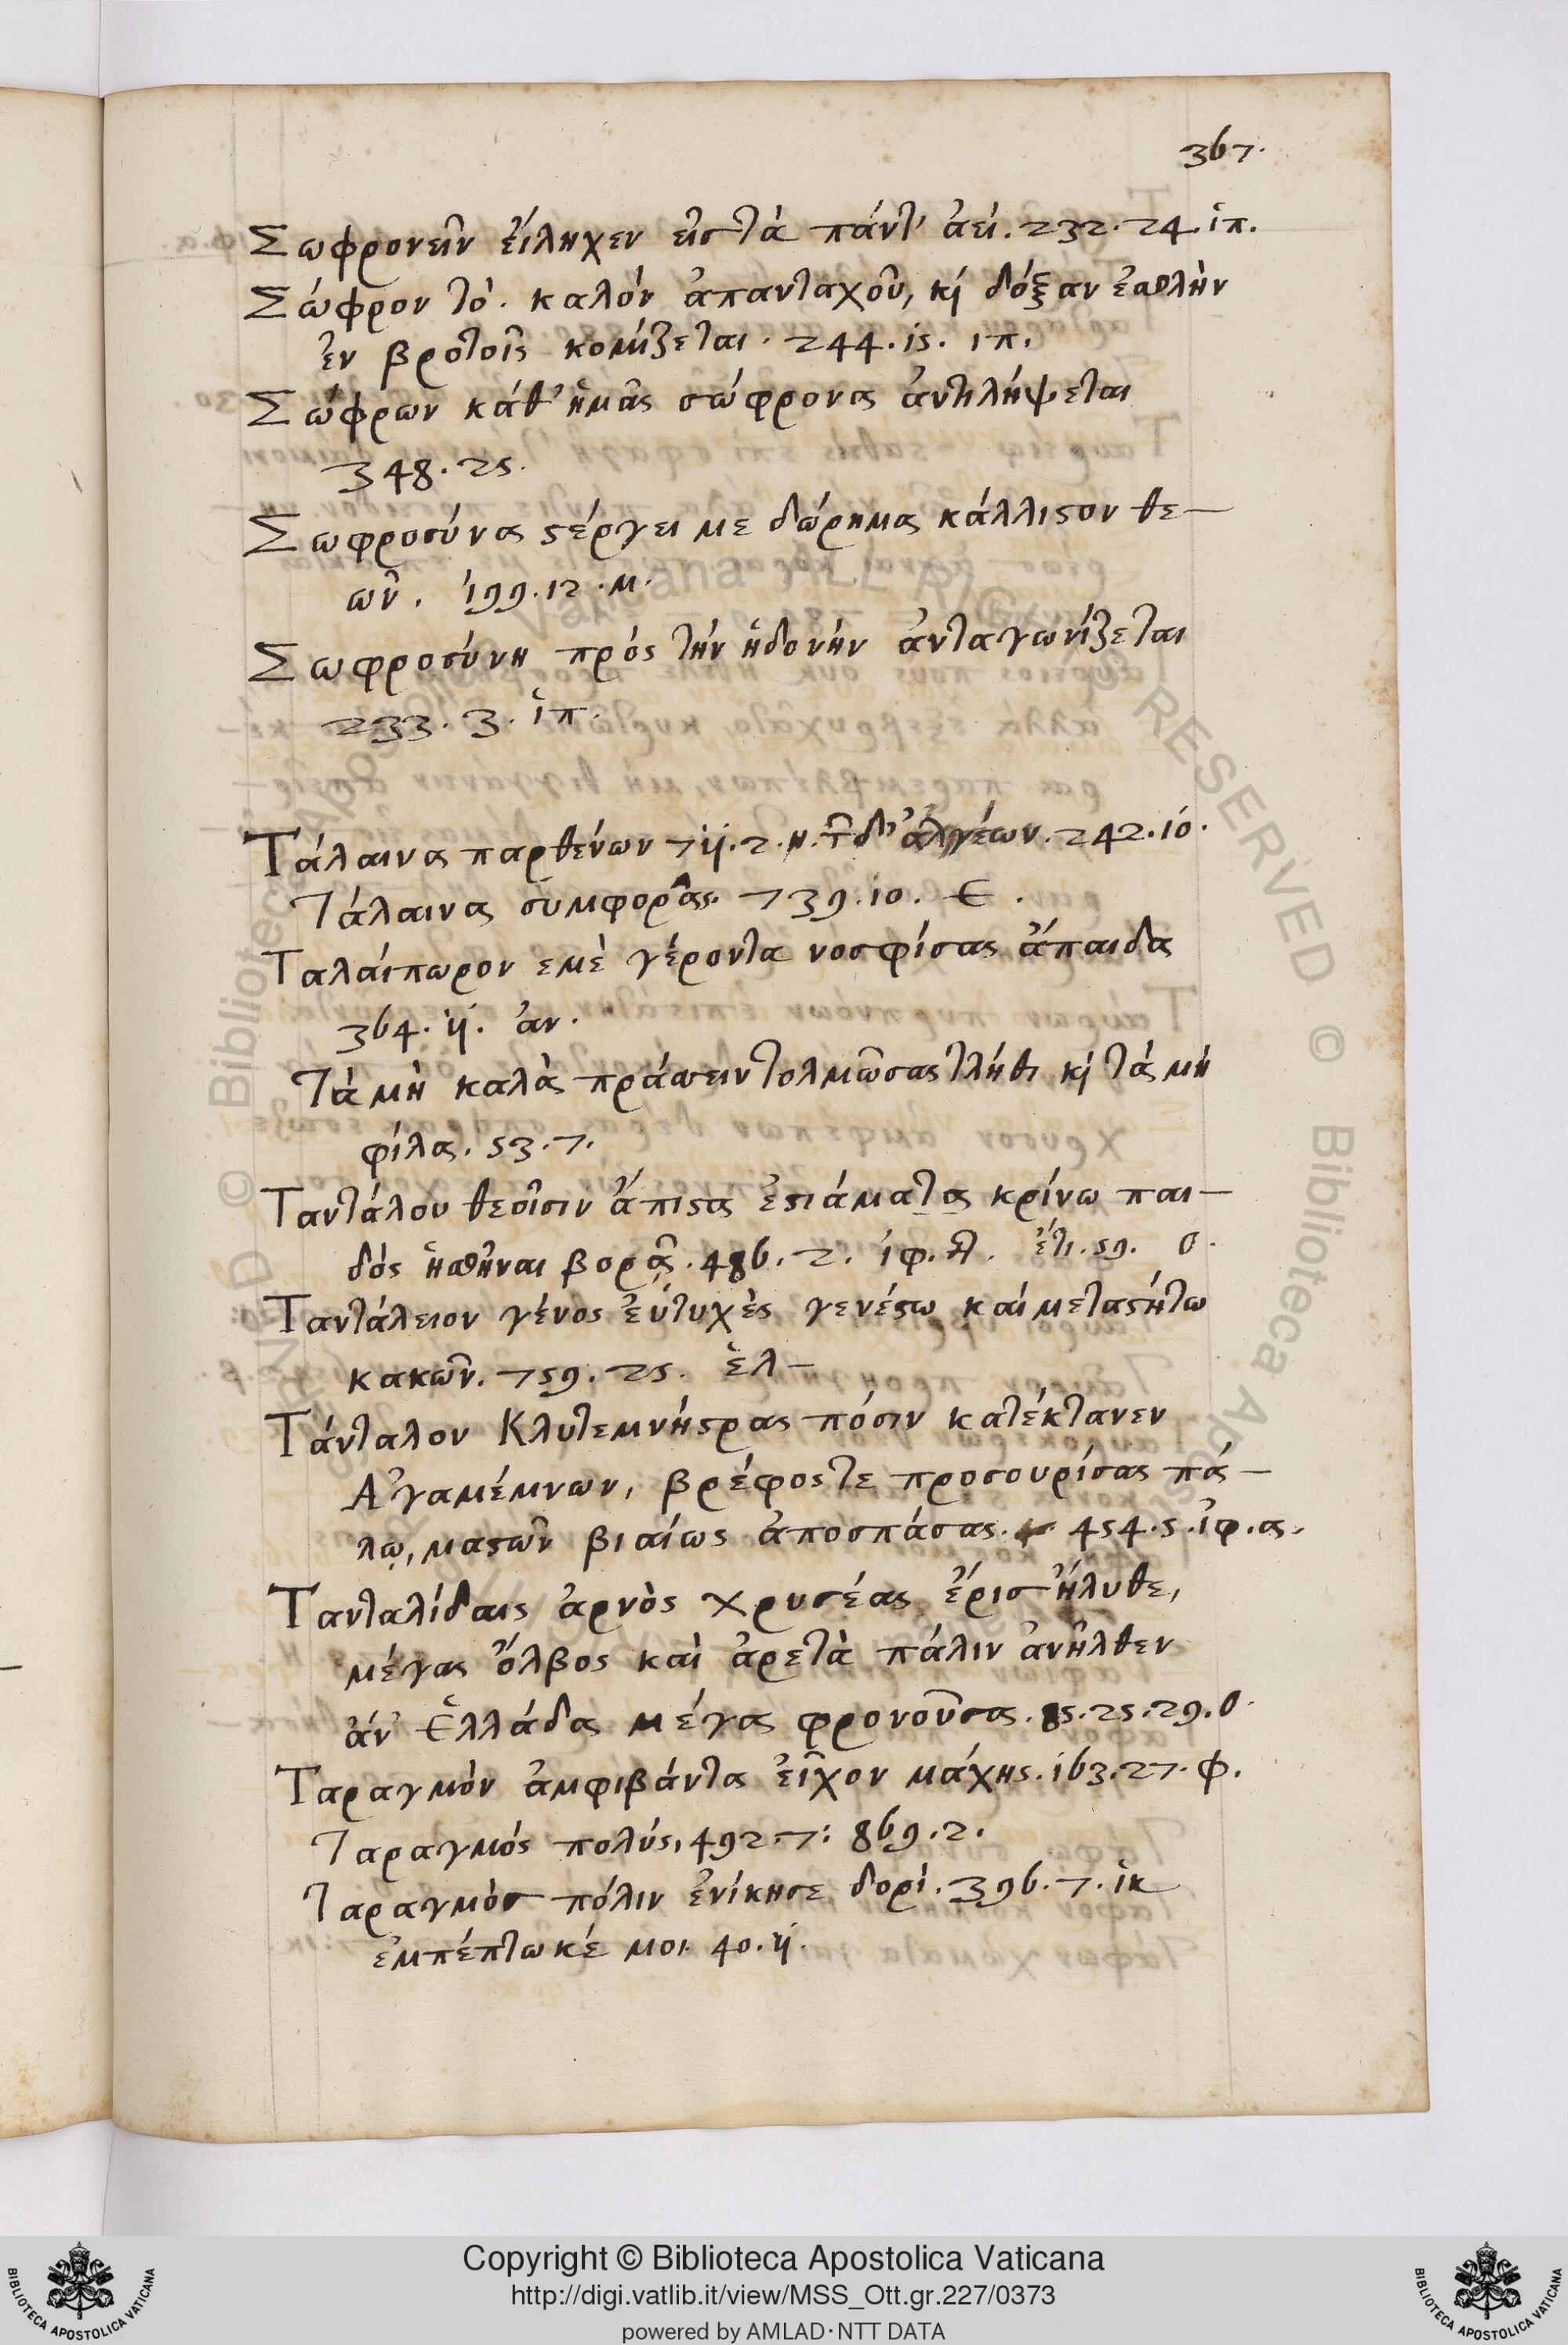 367.
Σωφρονεῖν εἴληχεν εἰς τὰ πάντ' ἀεί. 232. 24. ἱπ.
Σώφρον τὸ. καλὸν ἁπανταχοῦ, κὶ δόξαν ἐσθλὴν
ἐν βροτοῖς κομίζεται. 244. 15. ιπ.
Σώφρων κάθ' ἡμᾶς σώφρονος ἀντιλήψεται
348. 25.
Σωφροσύνα στέργει με δώρημα κάλλιστον θε-
ῶν. 199. 12. μ.
Σωφροσύνη πρὸς τὴν ἡδονὴν ἀνταγωνίζεται
233. 3. ἱπ.
Τάλαινα παρθένων 711. 2. η. τῶν δ' ἀλγέων. 242. 10.
Τάλαινα συμφορᾶς. 739. 10. ε.
Ταλαίπωρον ἐμὲ γέροντα νοσφίσας ἄπαιδα
364. 11. ἀν.
Τὰ μὴ καλὰ πράσσειν τολμῶσα τλῆθι κὶ τὰ μὴ
φίλα. 53. 7.
Ταντάλου θεοῖσιν ἄπιστα ἑστιάματα κρίνω παι-
δὸς ἡσθῆναι βορᾷ. 486. 2. ἰφ. ἔτι. 59. ο.
Ταντάλειον γένος εὐτυχὲς γενέστω καὶ μεταστήτω
κακῶν. 759. 25. ἑλ-
Τάνταλον Κλυτεμνήστρας πόσιν κατέκτανεν
Αγαμέμνων, βρέφος τε προσουρίσας πά-
λῳ, μαστῶν βιαίως ἀποσπάσας. 454. 5. ἰφ. α.
Τανταλίδαις ἀρνὸς χρυσέας ἔρις ἤλυθε,
μέγας ὄλβος καὶ ἀρετὰ πάλιν ἀνῆλθεν
ἀν' Ἑλλάδα μέγα φρονοῦσα. 85. 25. 29. ο.
Ταραγμὸν ἀμφιβάντα εἶχον μάχης. 163. 27. φ.
Ταραγμός πολύς, 492. 7: 869. 2.
Ταραγμὸς πόλιν ἐνίκησε δορί. 396. 7. ἱκ
ἐμπέπτωκέ μοι. 40. 11.
Copyright © Biblioteca Apostolica Vaticana
http://digi.vatlib.it/view/MSS_Ott.gr.227/0373
powered by AMLAD·NTT DATA